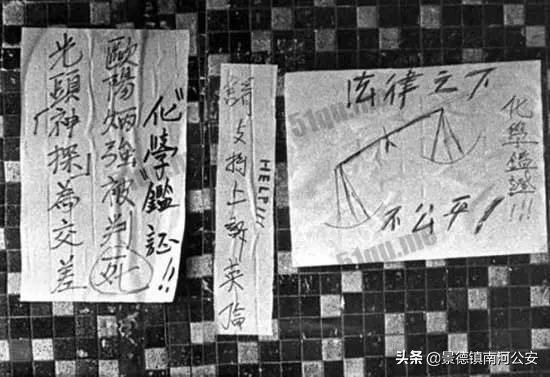 “化學”鑑証!!
歐陽炳強被判死
光頭「神探」為交差
請支持上訴英倫
HELP!!!
法律之下
不公平!
化學鑑證!!!
51qu.me
头条 @景德镇南河公安